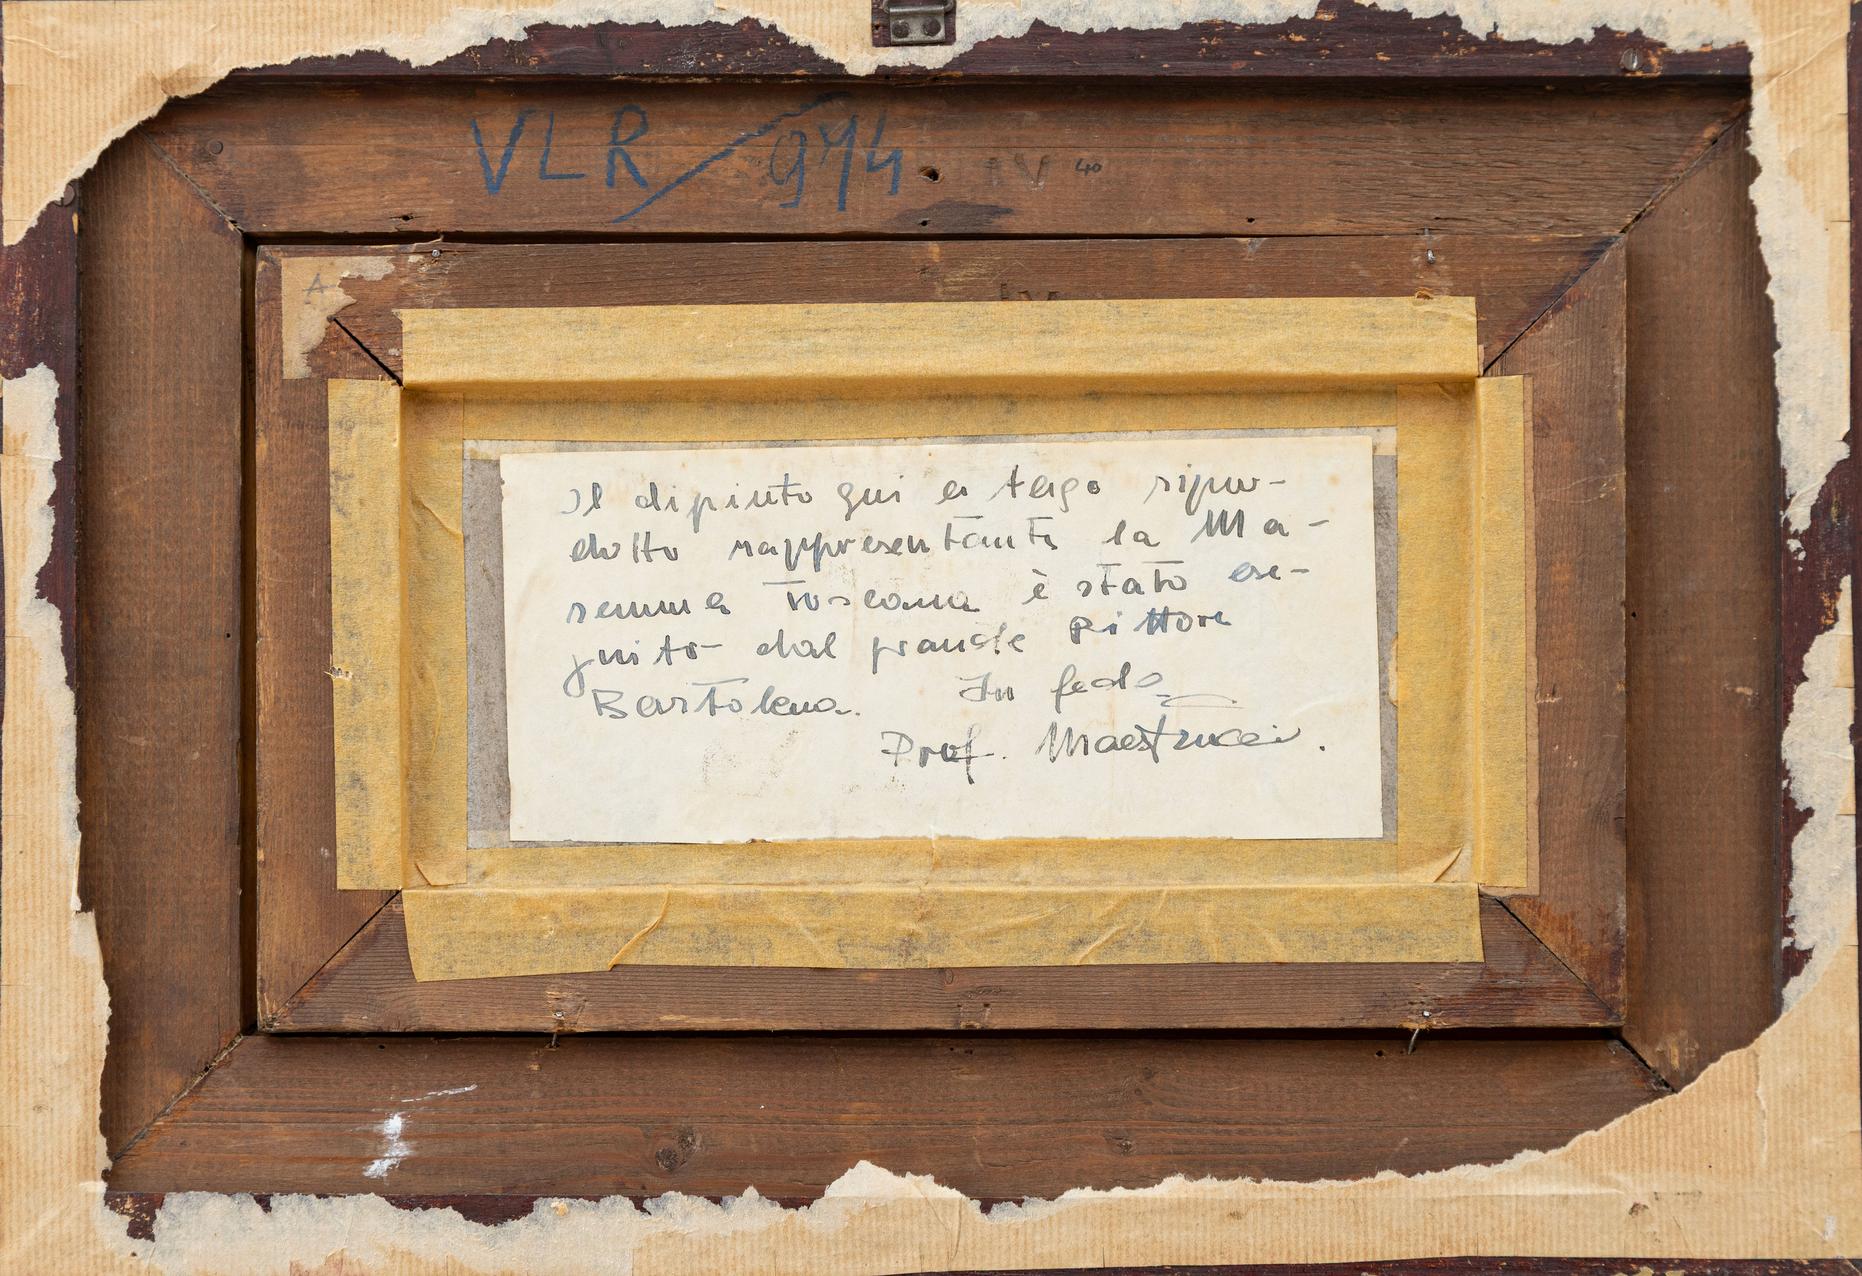 VLR/974.
IV 40
A
IV
Il dipinto qui a tergo ripro-
dotto rappresentante la Ma-
remma toscana è stato ese-
guito dal grande Pittore
Bartolena. In fede
Prof. Maestrucci.